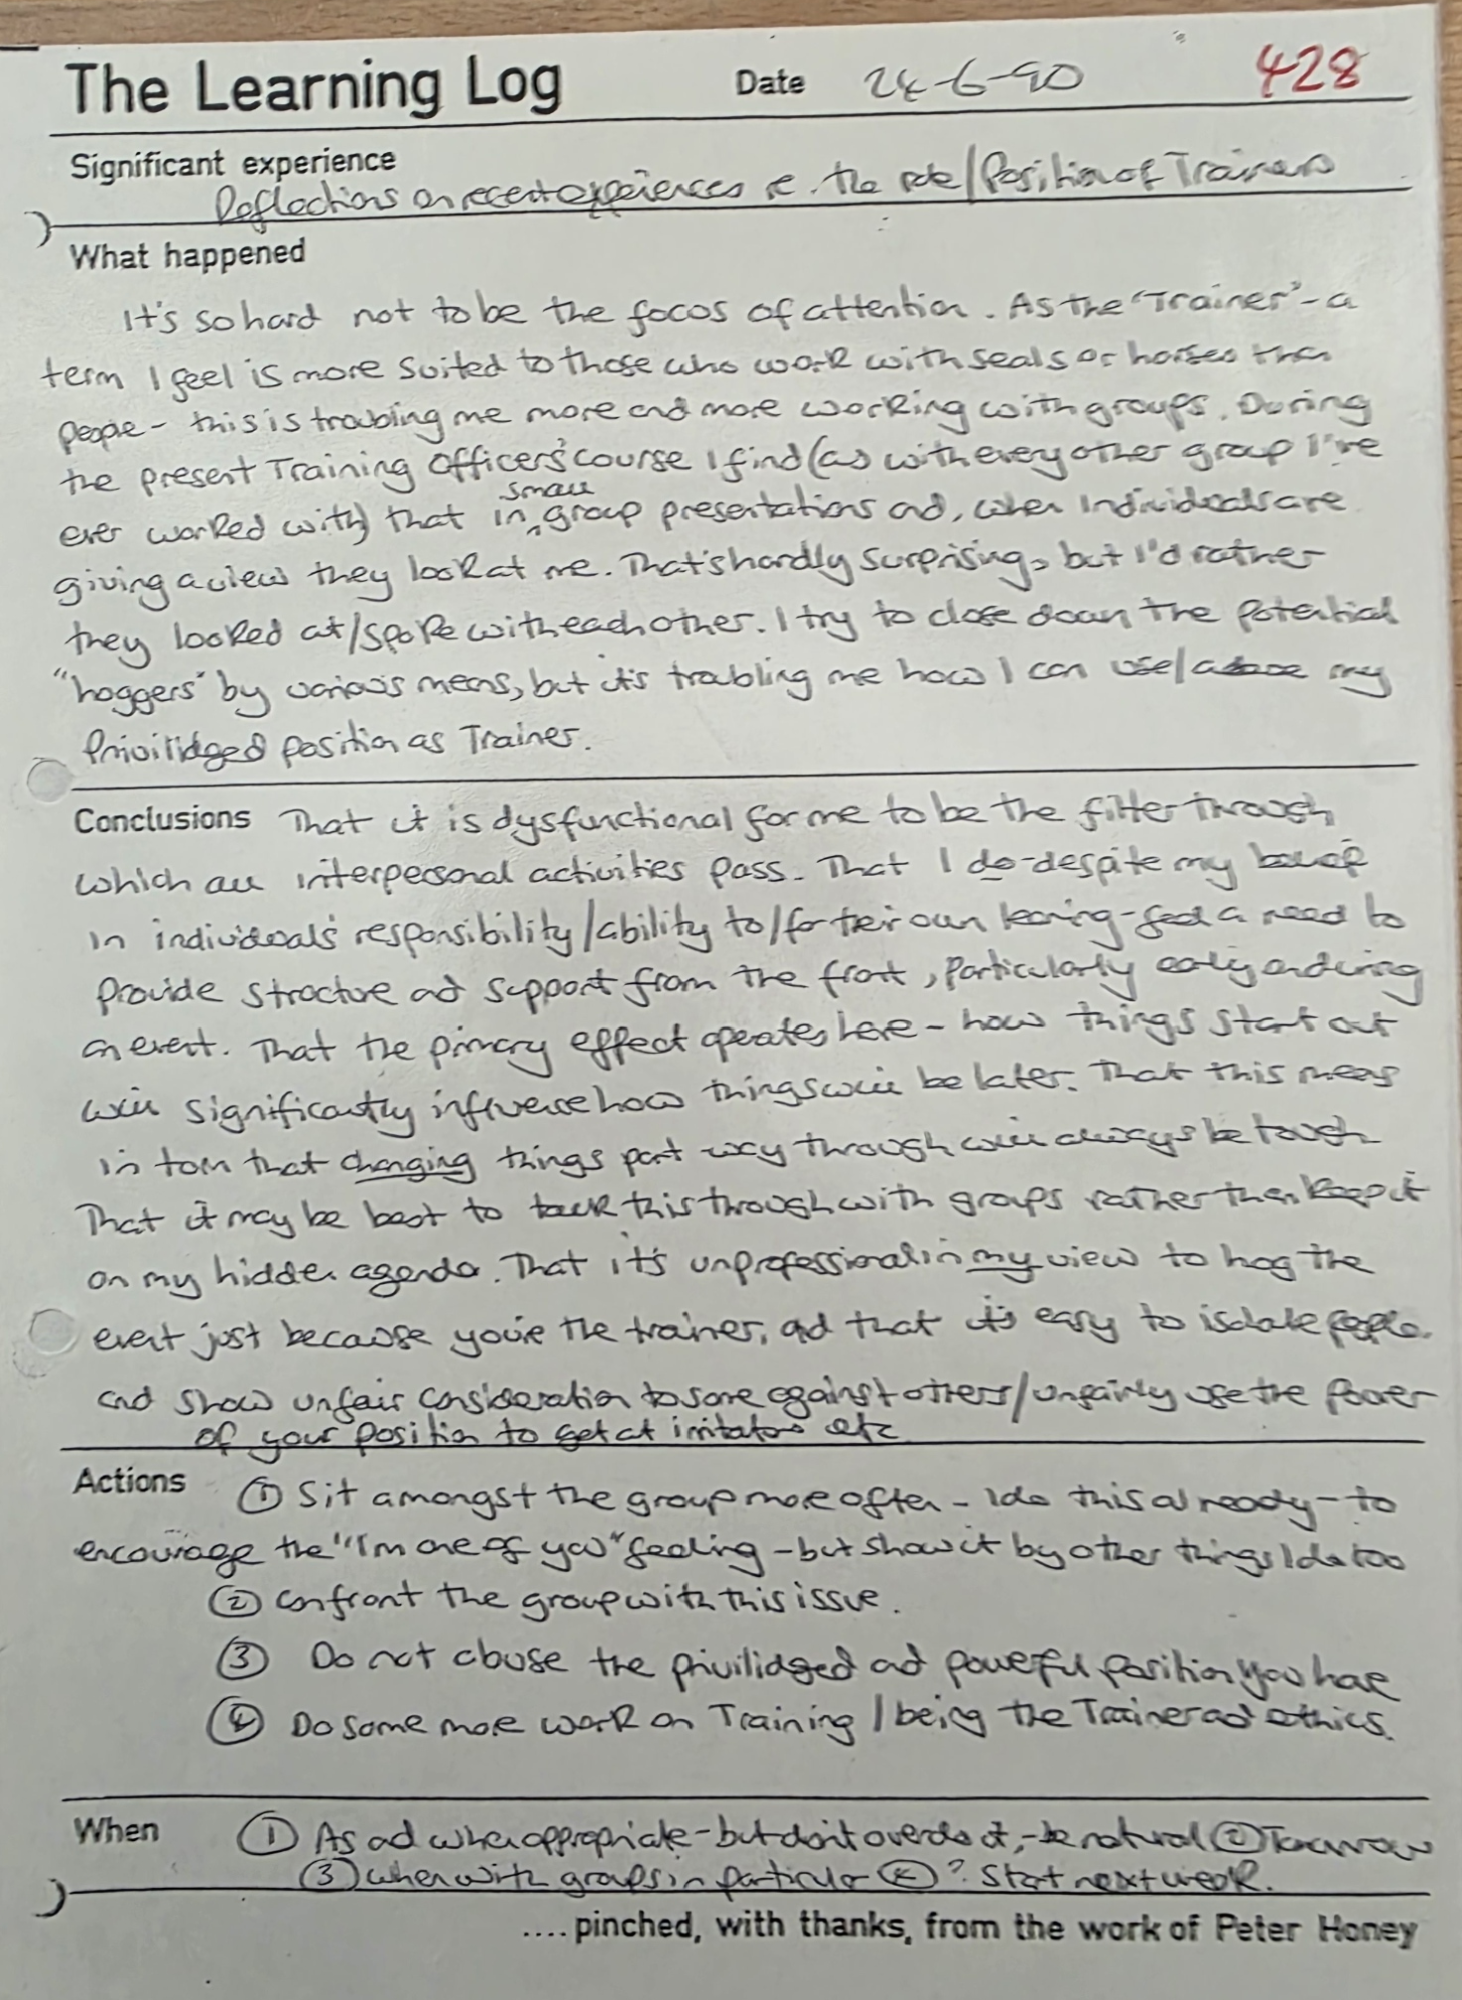 The Learning Log Date 24-6-90 428
Significant experience
Reflections on recent experiences re. the role/Position of Trainers
What happened
It's so hard not to be the focus of attention. As the 'Trainer' - a
term I feel is more suited to those who work with seals or horses than
people - this is troubling me more and more working with groups. During
the present Training Officers' course I find (as with every other group I've
small
ever worked with) that in group presentations and, when individuals are
giving a view they look at me. That's hardly surprising, but I'd rather
they looked at/spoke with each other. I try to close down the potential
"hoggers" by various means, but it's troubling me how I can use/abuse my
Privilidged position as Trainer.
Conclusions That it is dysfunctional for me to be the filter through
which all interpersonal activities pass. That I do - despite my belief
in individual's responsibility/ability to/for their own learning - feel a need to
provide structure and support from the front, particularly early on during
an event. That the primacy effect operates here - how things start out
will significantly influence how things will be later. That this means
in turn that changing things part way through will always be tough
That it may be best to talk this through with groups rather than keep it
on my hidden agenda. That it's unprofessional in my view to hog the
event just because you're the trainer, and that it's easy to isolate people.
and show unfair consideration to some against others/unfairly use the power
of your position to get at irritators etc
Actions ① Sit amongst the group more often - I do this already - to
encourage the "I'm one of you" feeling - but show it by other things I do too
② Confront the group with this issue.
③ Do not abuse the privilidged and powerful position you have
④ Do some more work on Training / being the Trainer and ethics.
When ① As and when appropriate - but don't overdo it, - be natural ② Tomorrow
③ when with groups in particular ④ ? Start next week.
....pinched, with thanks, from the work of Peter Honey